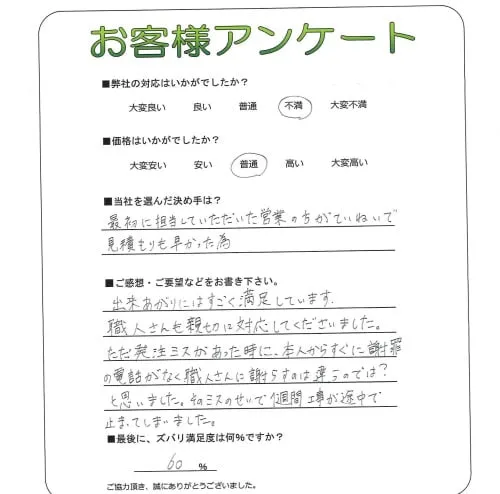 お客様アンケート
■弊社の対応はいかがでしたか？
大変良い 良い 普通 不満 大変不満
■価格はいかがでしたか？
大変安い 安い 普通 高い 大変高い
■当社を選んだ決め手は？
最初に担当していただいた営業の方がていねいで
見積もりも早かった為
■ご感想・ご要望などをお書き下さい。
出来あがりにはすごく満足しています。
職人さんも親切に対応してくださいました。
ただ発注ミスがあった時に、本人からすぐに謝罪
の電話がなく職人さんに謝らすのは違うのでは？
と思いました。そのミスのせいで1週間工事が途中で
止まてしまいました。
■最後に、ズバリ満足度は何%ですか？
60 %
ご協力頂き、誠にありがとうございました。